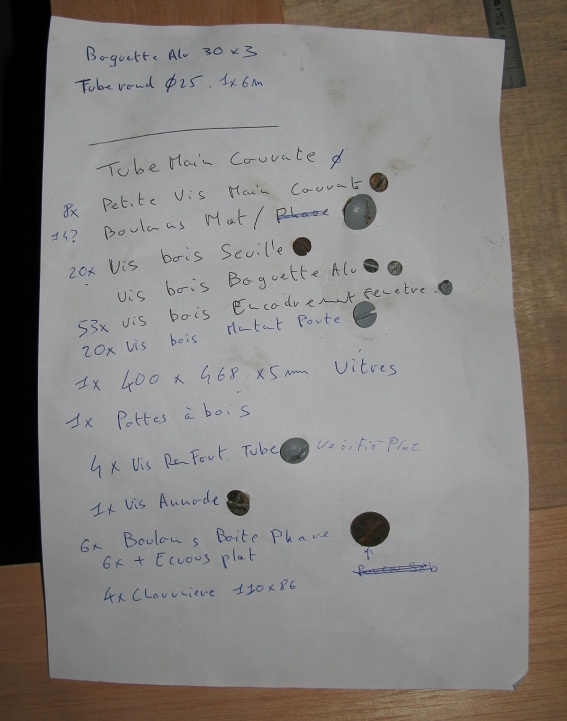 Baguette Alu 30x3
Tube rond Ø25. 1x6m
Tube Main Courate Ø
8x Petite Vis Main Courate
14? Boulons Mat / Phare
20x Vis bois Seuille
Vis bois Baguette Alu
53x Vis bois Encadrement Fenetre.
20x Vis bois Montant Porte
1x 400 x 468 x5mm Vitres
1x Pattes à bois
4x Vis Renfort Tube Verifié Plat
1x Vis Annode
6x Boulons Boite Phare
6x + Ecrous plat
4x Charniere 110x86